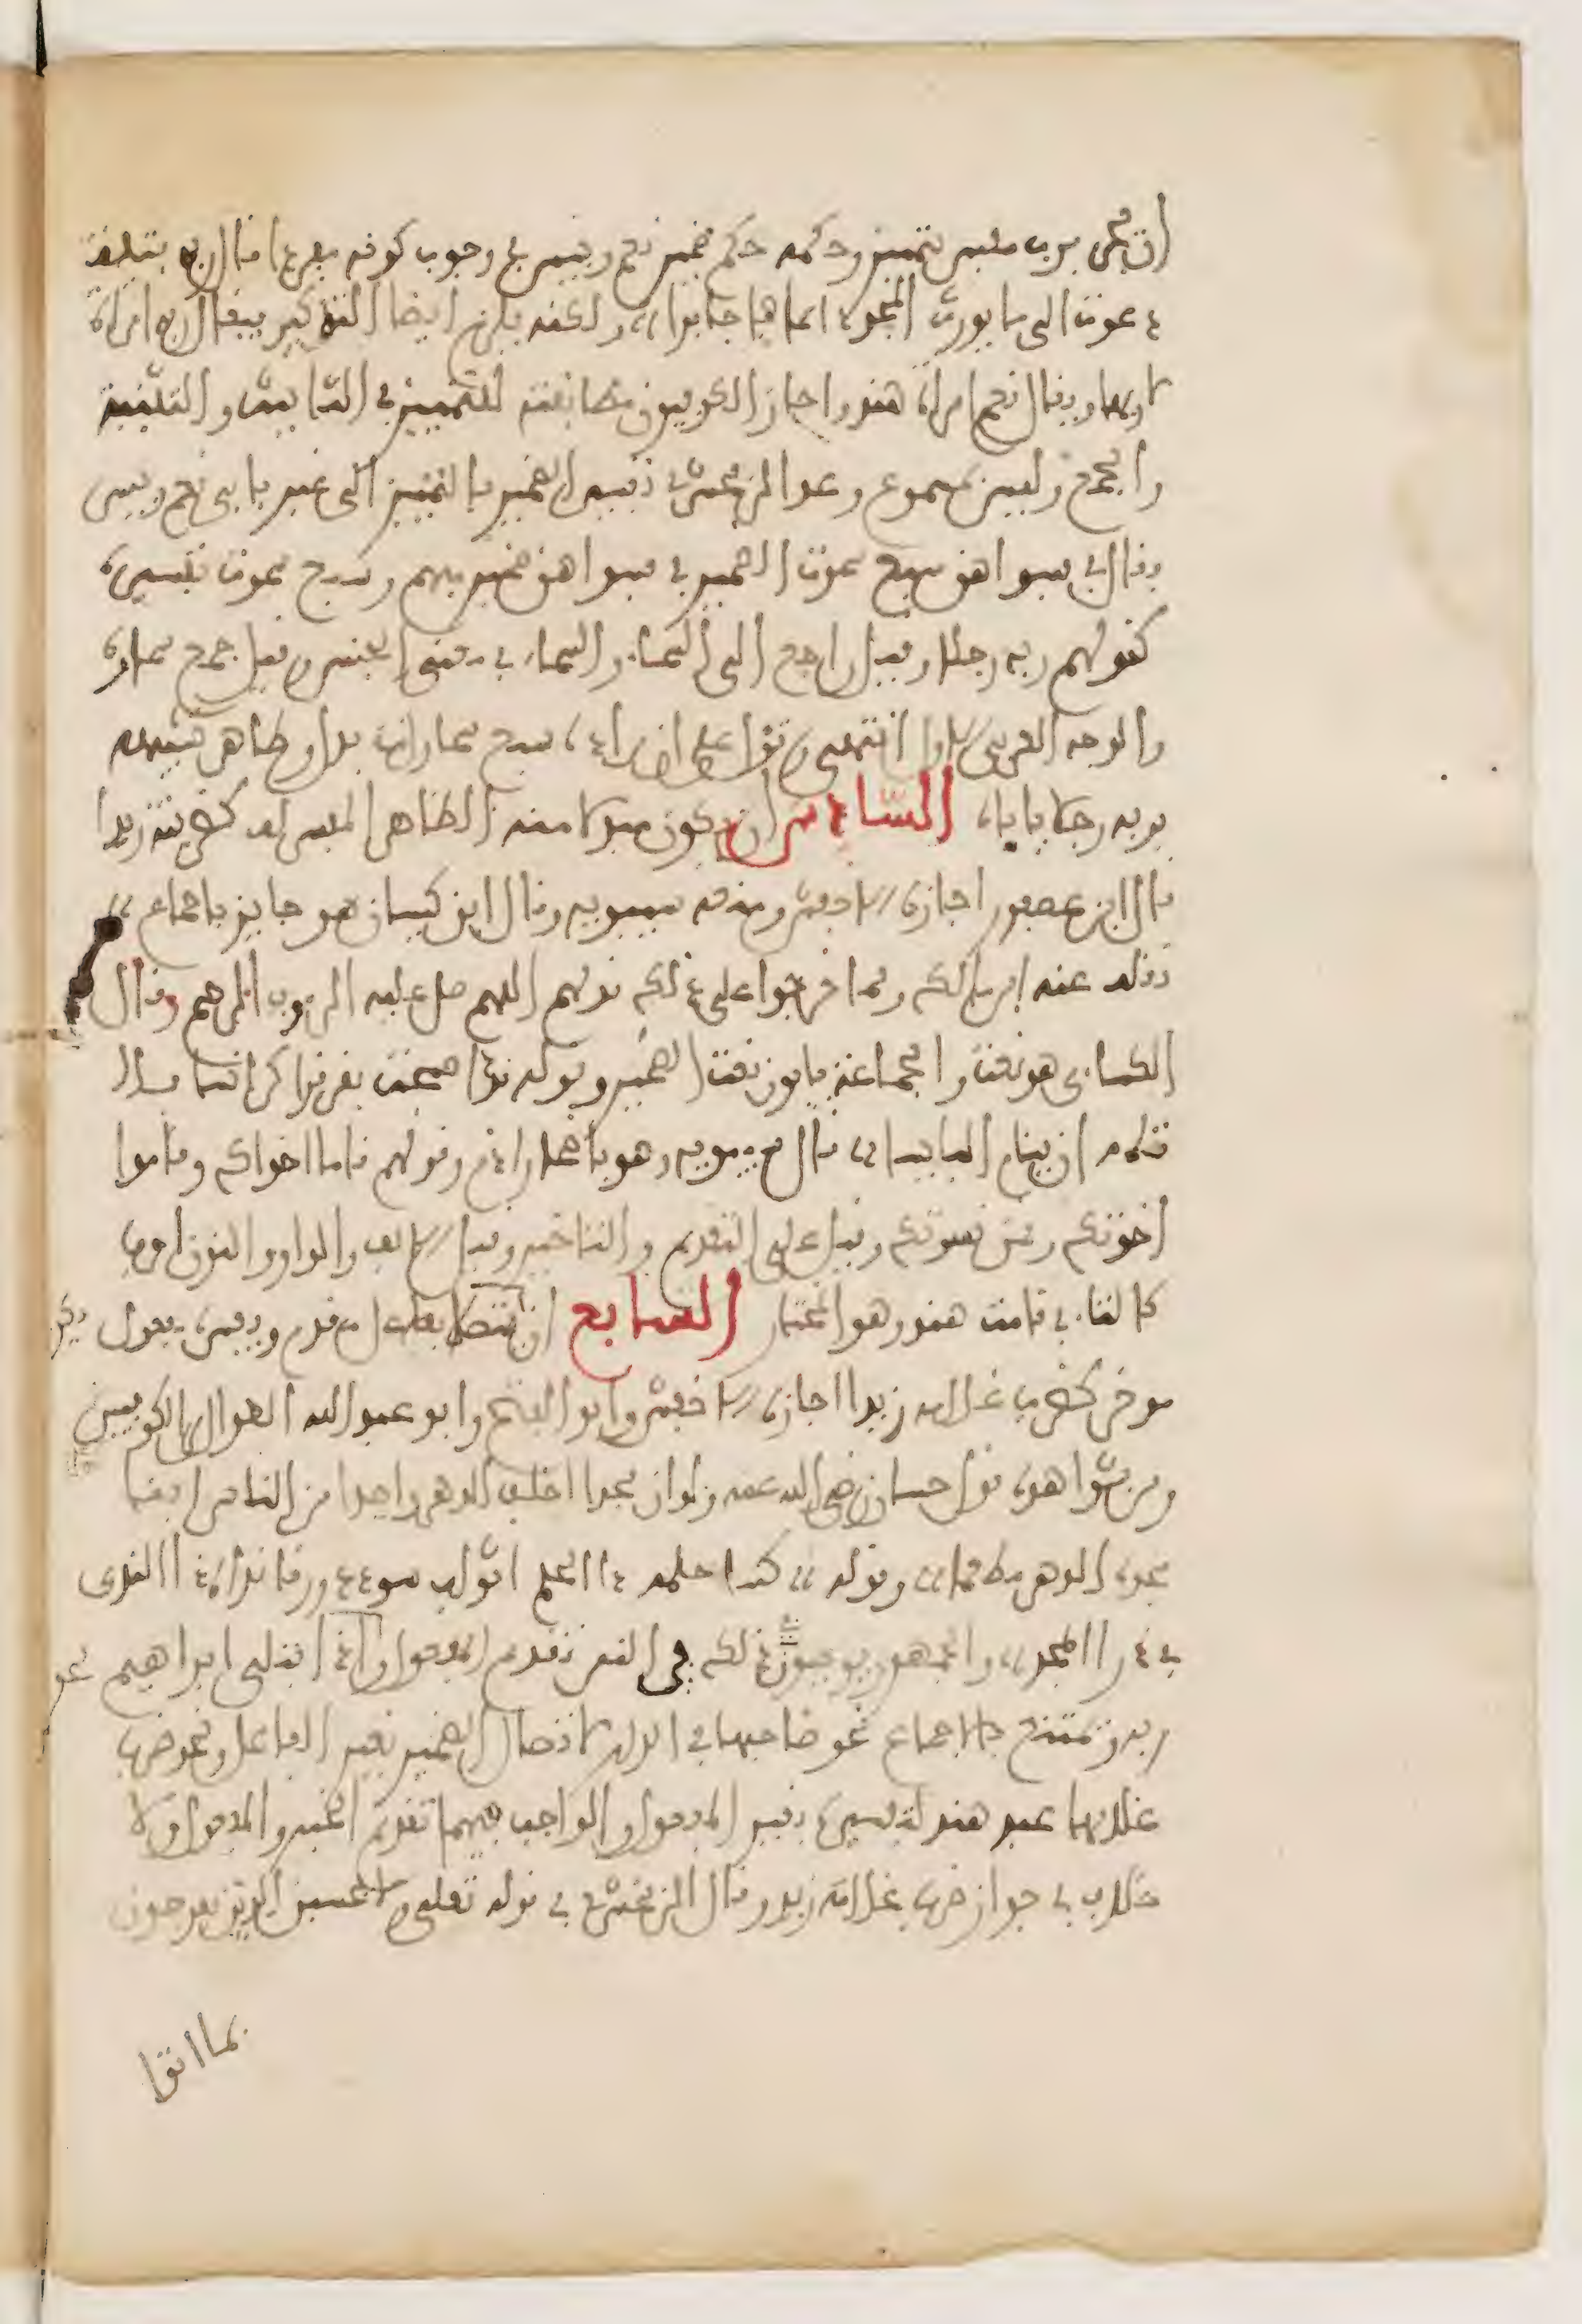 ان يجر برب مفسر بتمييز وحكمه حكم ضمير نعم وبيس في وجوب كونه مفردا قال ربه فتية
دعوت الى ما يورث المجد دائما فاجابوا ولكنه يلزم ايضا التذكير فيقال ربه امراة
لا ربها ويقال نعم امراة هند واجاز الكوفيون مطابقته للتمييز في التانيث والتثنية
والجمع وليس بمسموع وعد الزمخشري تفسير الضمير بالتمييز الى غير بابي نعم وبيس
وقال في فسواهن سبع سموت الضمير في فسواهن ضمير مبهم وسبع سموت تفسيره
كقولهم ربه رجلا وقيل راجع الى السماء والسماء في معنى الجنس وقيل جمع سماوة
والوجه العربي الاول انتهى وتؤول على ان مراده ان سبع سماوات بدل وظاهر تشبيهه
بربه رجلا ياباه السادس ان يكون مبدلا منه الظاهر المفسر له كضربته زيدا
قال ابن عصفور اجازه الاخفش ومنعه سيبويه وقال ابن كيسان هو جايز باجماع
نقله عنه ابن مالك ومما خرجوا على ذلك قولهم اللهم صل عليه الرءوف الرحيم وقال
الكساءي هو نعت والجماعة يابون نعت الضمير وقوله قد اصبحت بقرقرا كوانسا فلا
تلمه ان ينام البايسا قال سيبويه هو باضمار اذم وقولهم قاما اخواك وقاموا
اخوتك وقمن نسوتك وقيل على التقديم والتاخير وقيل الالف والواو والنون احرف
كالتاء في قامت هند وهو المختار السابع ان يتصل بفاعل مقدم ويفسره مفعول
موخر كضرب غلامه زيدا اجازه الاخفش وابو الفتح وابو عبد الله الطوال من الكوفيين
ومن شواهده قول حسان رضي الله عنه ولو ان مجدا اخلد الدهر واحدا من الناس ابقى
مجده الدهر مطعما وقوله كسا حلمه ذا الحلم اثواب سودد ورقا نداه ذا الندى
في ذرا المجد والجمهور يوجبون في ذلك في النثر تقديم المفعول واذ ابتلى ابراهيم
ربه ويمتنع بالاجماع نحو صاحبها في الدار لاتصال الضمير بغير الفاعل ونحو ضرب
غلامها عبد هند لتفسيره بغير المفعول والواجب فيهما تقديم الخبر والمفعول ولا
خلاف في جواز ضرب غلامه زيد وقال الزمخشري في قوله تعلى لا تحسبن الذين يفرحون
بما اتوا